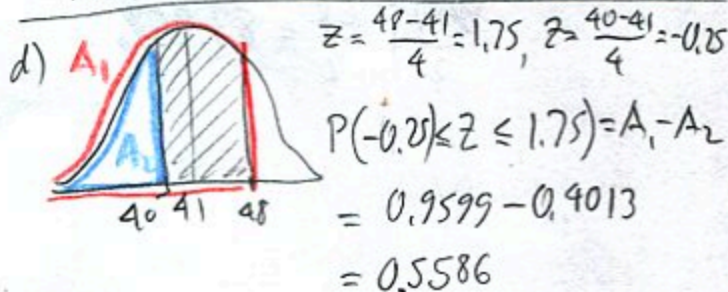 d) A₁ A₂
40 41 48
z = (48-41)/4 = 1.75, z = (40-41)/4 = -0.25
P(-0.25 ≤ Z ≤ 1.75) = A₁ - A₂
= 0.9599 - 0.4013
= 0.5586